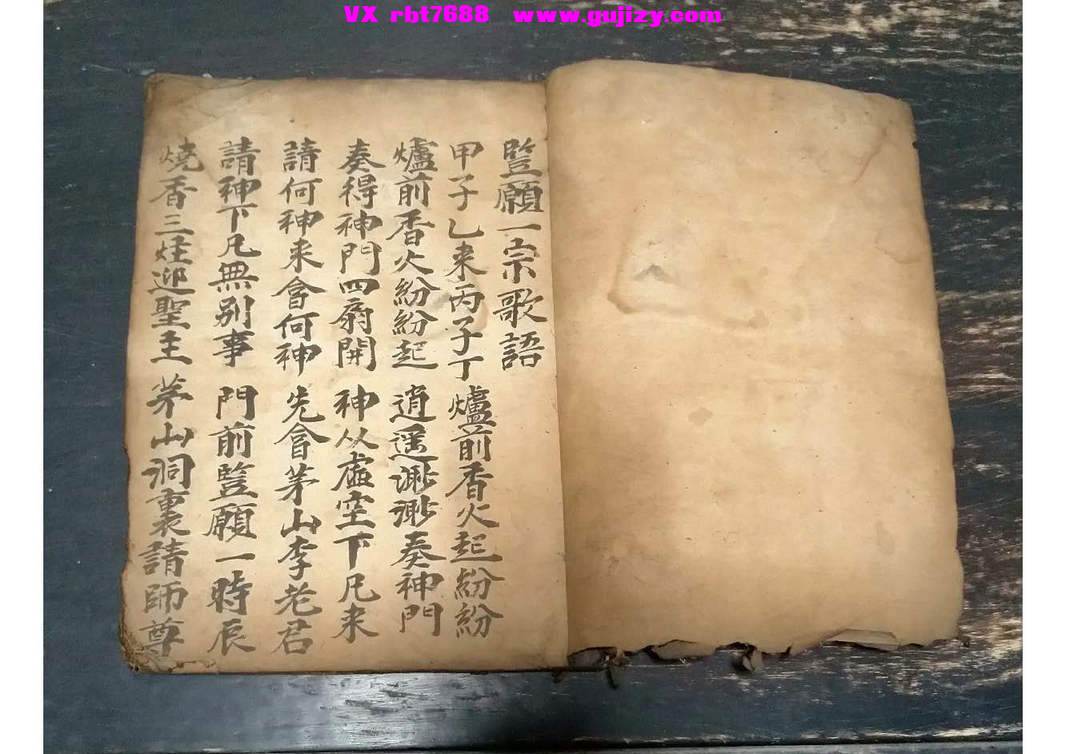 VX rbt7688 www.gujizy.com
豎願一宗歌語
甲子乙来丙子丁 爐前香火起紛紛
爐前香火紛紛起 逍遥渺渺奏神門
奏得神門四扇開 神从虛空下凡来
請何神来會何神 先會茅山李老君
請神下凡無别事 門前豎願一時辰
燒香三炷迎聖主 茅山洞裏請師尊